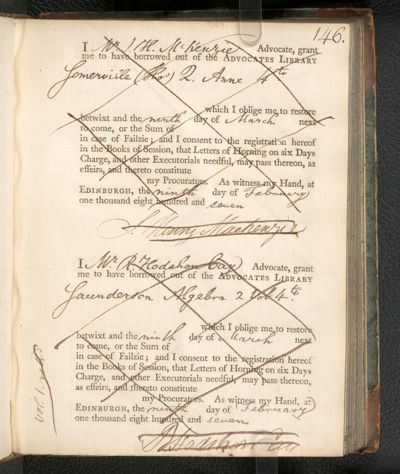 146.
I Mr J. H. McKenzie Advocate, grant
me to have borrowed out of the ADVOCATES LIBRARY
Somerville (Tho) Q. Anne 4to
which I oblige me to restore
betwixt and the ninth day of March next
to come, or the Sum of
in case of Failzie; and I consent to the registration hereof
in the Books of Session, that Letters of Horning on six Days
Charge, and other Executorials needful, may pass thereon, as
effeirs, and thereto constitute
my Procurators. As witness my Hand, at
EDINBURGH, the ninth day of February
one thousand eight hundred and seven
J. Henry Mackenzie
I Mr R. Hodshon Cay Advocate, grant
me to have borrowed out of the ADVOCATES LIBRARY
Saunderson Algebra 2 Vol 4to.
which I oblige me to restore
betwixt and the ninth day of March next
to come, or the Sum of
in case of Failzie; and I consent to the registration hereof
in the Books of Session, that Letters of Horning on six Days
Charge, and other Executorials needful, may pass thereon,
as effeirs, and thereto constitute
my Procurators. As witness my Hand, at
EDINBURGH, the ninth day of February
one thousand eight hundred and seven
Hodshon Cay
vol. 1